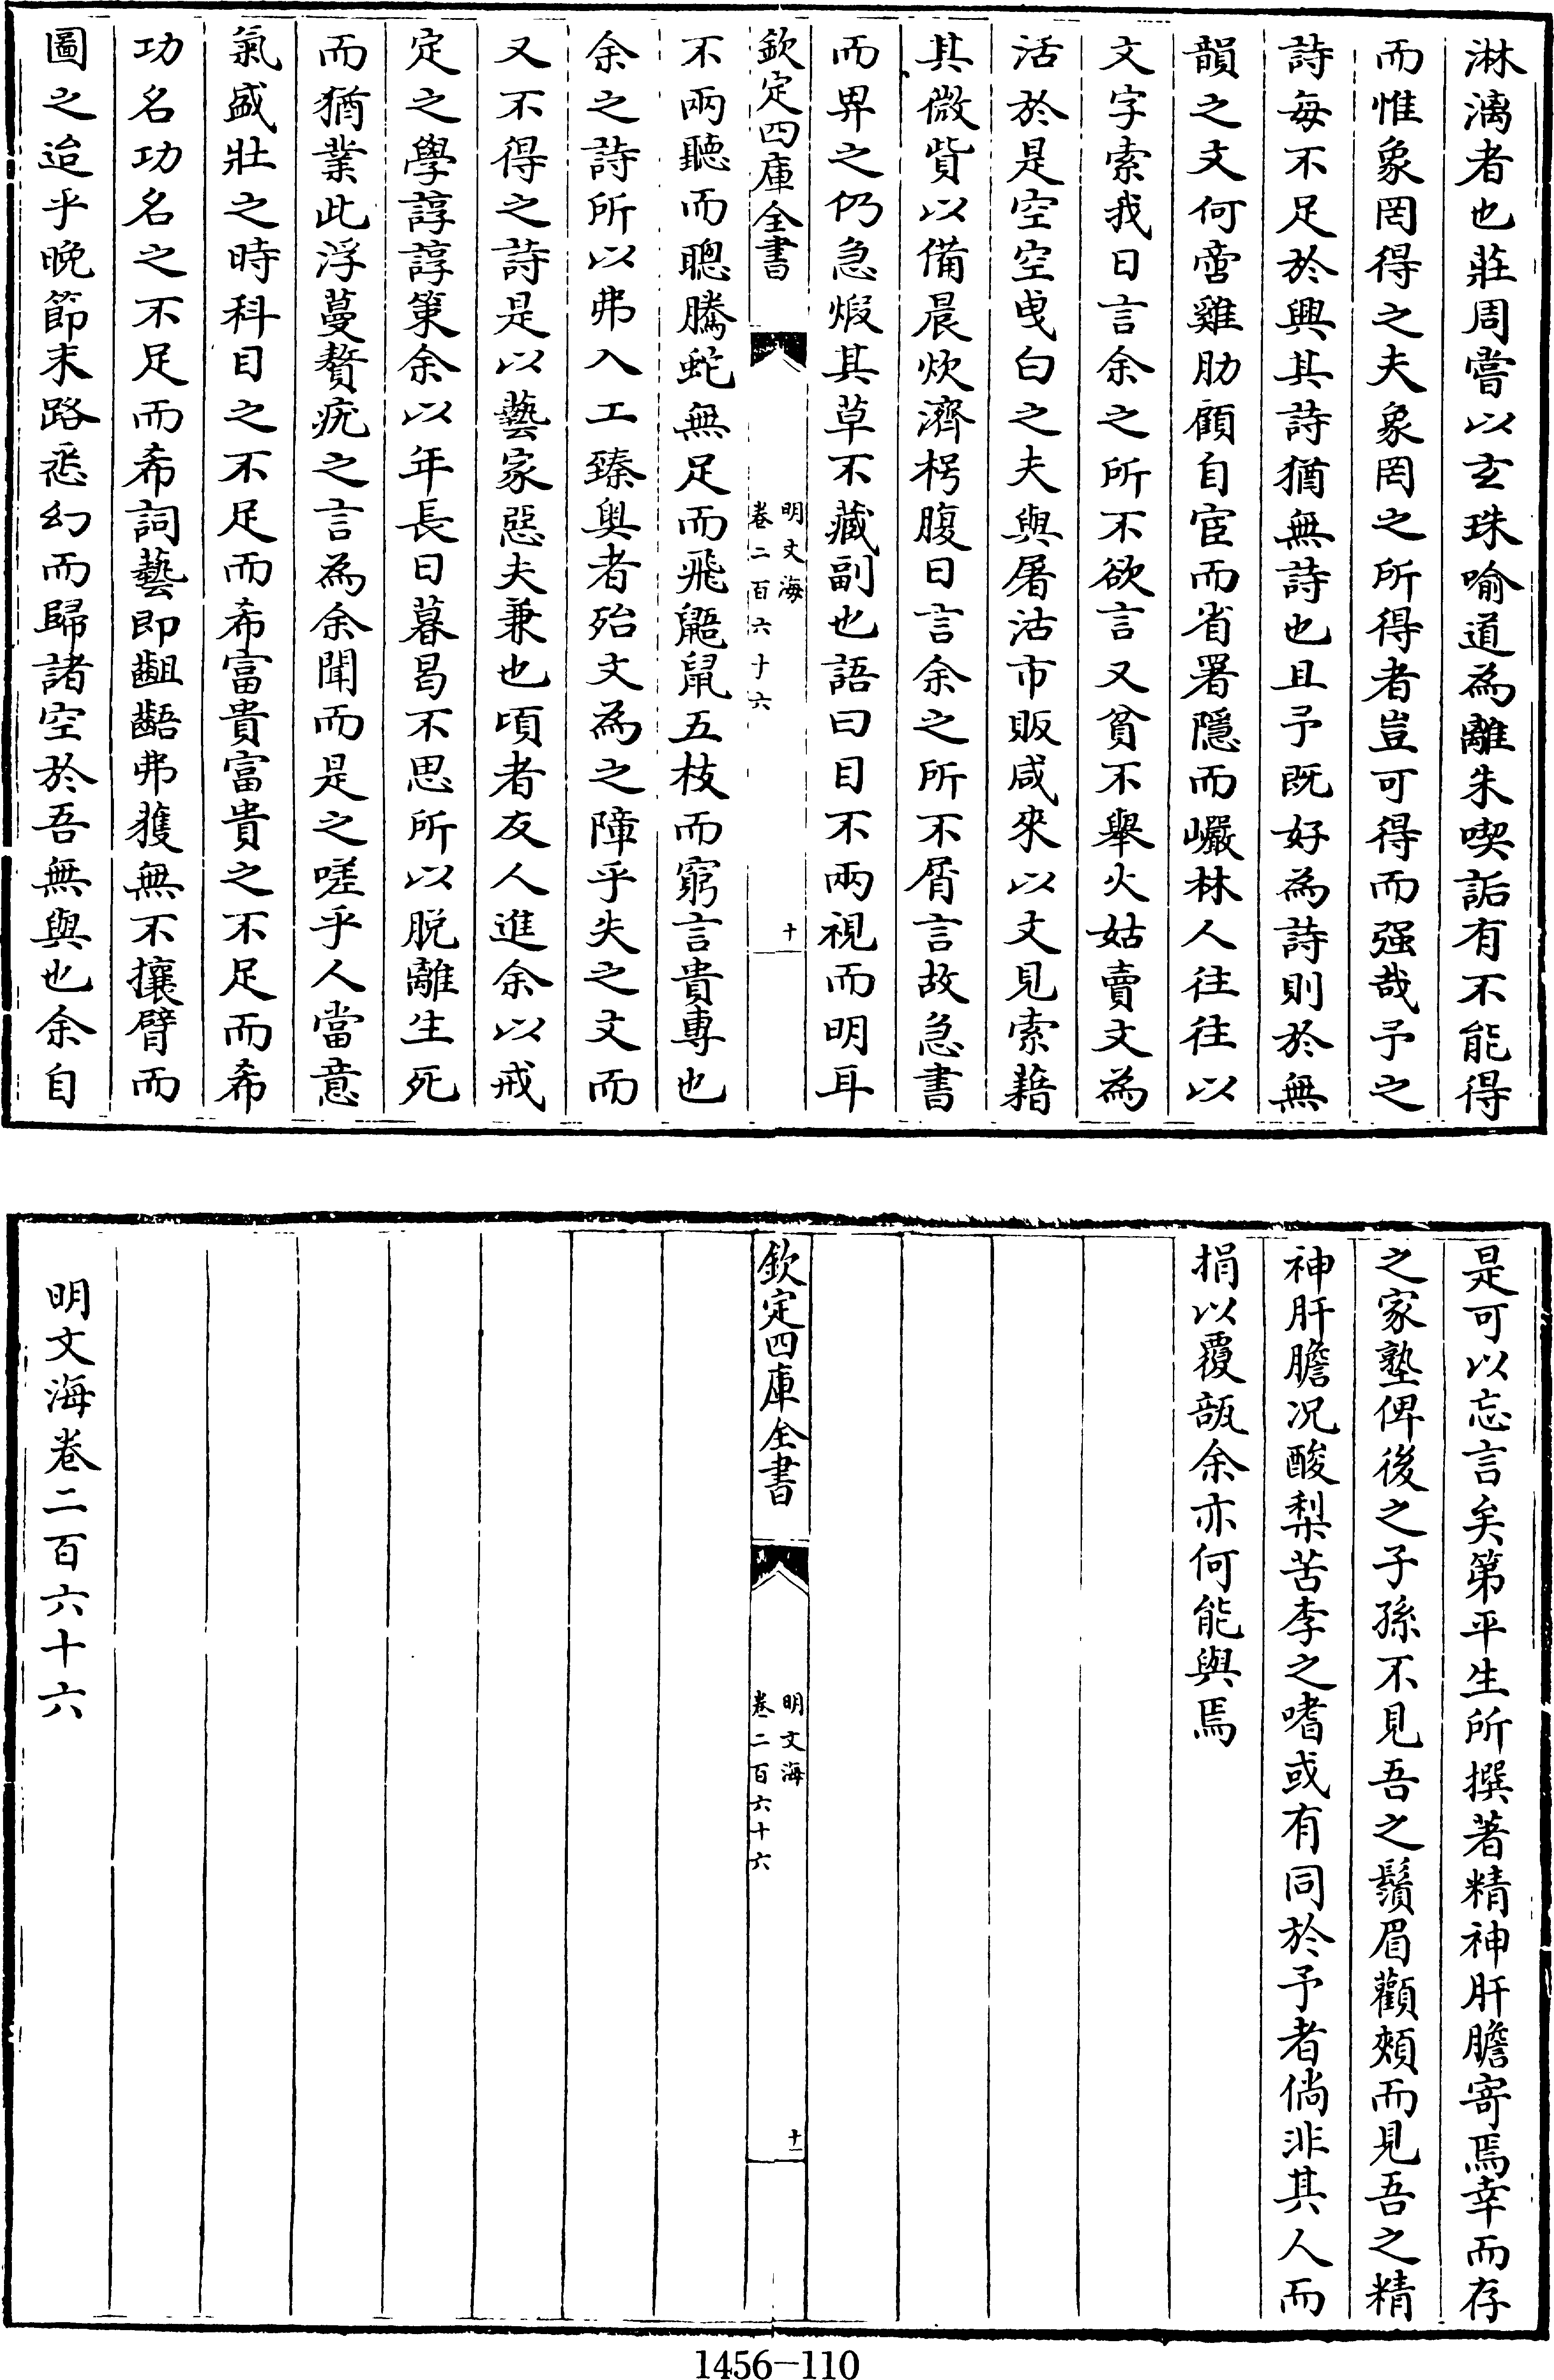 淋漓者也莊周嘗以玄珠喻道為離朱喫詬有不能得
而惟象罔得之夫象罔之所得者豈可得而强哉予之
詩每不足於興其詩猶無詩也且予既好為詩則於無
韻之文何啻雞肋顧自宦而省署隱而巗林人往往以
文字索我日言余之所不欲言又貧不舉火姑賣文為
活於是空空曳白之夫與屠沽市販咸來以文見索藉
其微貲以備晨炊濟枵腹日言余之所不屑言故急書
而畀之仍急煅其草不藏副也語曰目不兩視而明耳
欽定四庫全書
明文海
卷二百六十六
十
不兩聽而聰騰蛇無足而飛鼯鼠五枝而窮言貴專也
余之詩所以弗入工臻奥者殆文為之障乎失之文而
又不得之詩是以藝家惡夫兼也頃者友人進余以戒
定之學諄諄策余以年長日暮曷不思所以脱離生死
而猶業此浮蔓贅疣之言為余聞而是之嗟乎人當意
氣盛壯之時科目之不足而希富貴富貴之不足而希
功名功名之不足而希詞藝即齟齬弗獲無不攘臂而
圖之迨乎晚節末路悉幻而歸諸空於吾無與也余自
是可以忘言矣第平生所撰著精神肝膽寄焉幸而存
之家塾俾後之子孫不見吾之鬚眉顴頰而見吾之精
神肝膽况酸梨苦李之嗜或有同於予者倘非其人而
捐以覆瓿余亦何能與焉
欽定四庫全書
明文海
卷二百六十六
十一
明文海卷二百六十六
1456-110